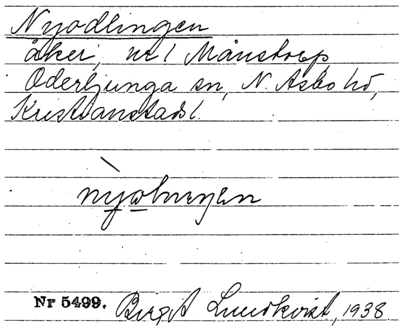 Nyodlingen
åker, nr 1 Månstorp,
Oderljunga sn, N. Åsbo hd,
Kristianstads l.
Nr 5499. Birgit Lundkvist, 1938